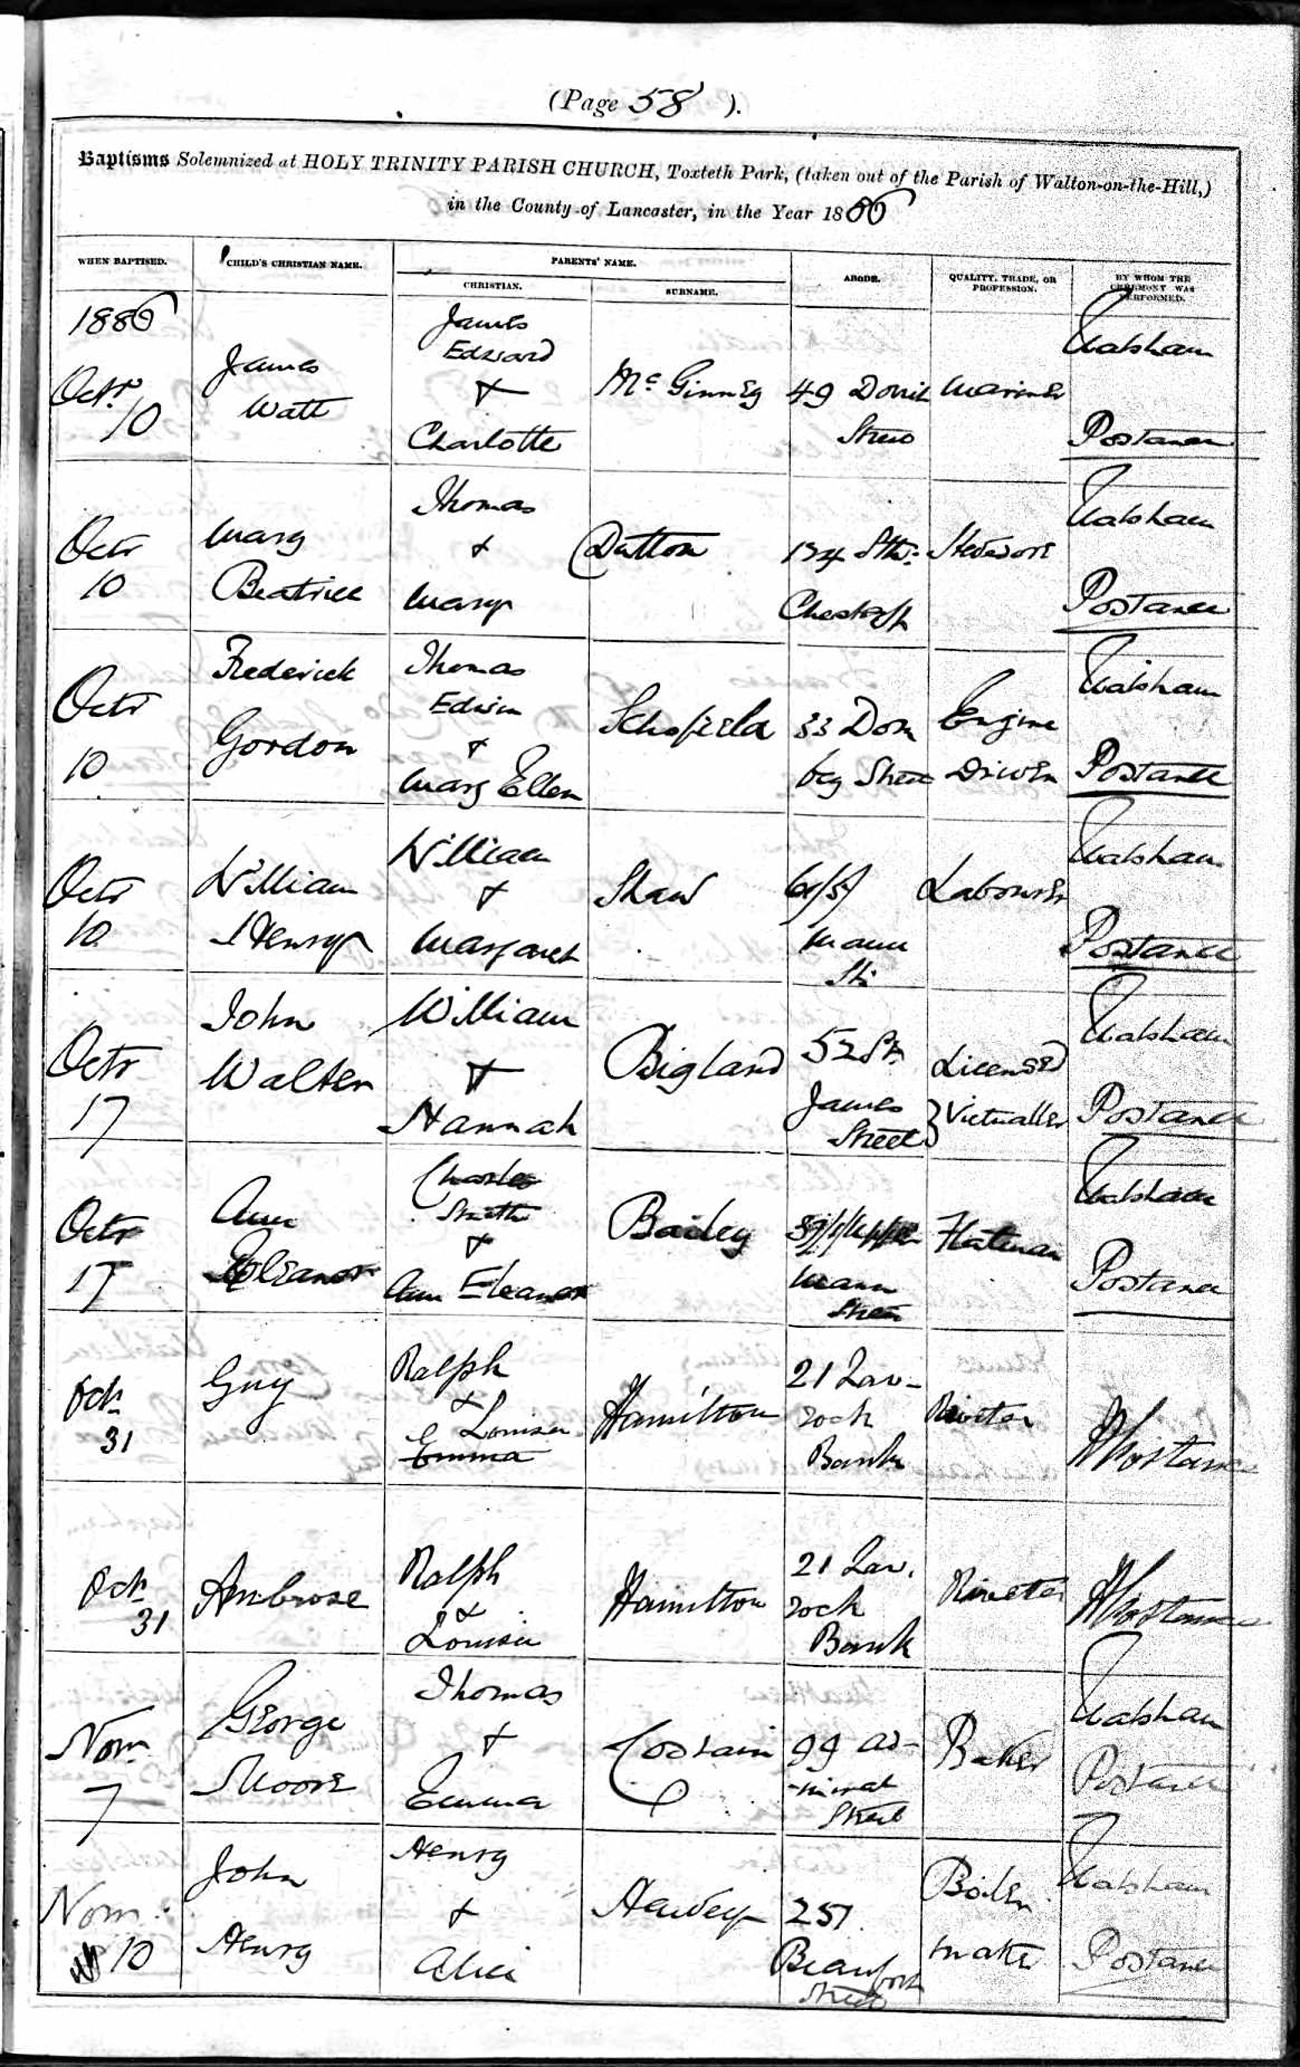 (Page 58 ).
Baptisms Solemnized at HOLY TRINITY PARISH CHURCH, Toxteth Park, (taken out of the Parish of Walton-on-the-Hill,)
in the County of Lancaster, in the Year 1886
WHEN BAPTISED.
CHILD'S CHRISTIAN NAME.
PARENTS' NAME.
CHRISTIAN.
SURNAME.
ABODE.
QUALITY, TRADE, OR
PROFESSION.
BY WHOM THE
CEREMONY WAS
PERFORMED.
1886
Octr
10
James
Watt
James
Edward
+
Charlotte
Mc Ginney
49 Dorrit
Street
Mariner
Walsham
Postance
Octr
10
Mary
Beatrice
Thomas
+
Mary
Dutton
134 Sth.
Chester St
Stevedore
Walsham
Postance
Octr
10
Frederick
Gordon
Thomas
Edwin
+
Mary Ellen
Schofield
33 Dom
bey Street
Engine
Driver
Walsham
Postance
Octr
10
William
Henry
William
+
Margaret
Shaw
Mann
St.
Labourer
Walsham
Postance
Octr
17
John
Walter
William
+
Hannah
Bigland
52 St.
James
Street
Licensed
Victualler
Walsham
Postance
Octr
17
Ann
Eleanor
Charles
Smith
+
Ann Eleanor
Bailey
Upper
Mann
Street
Flatman
Walsham
Postance
Oct.
31
Guy
Ralph
&
Louisa
Emma
Hamilton
21 Lav-
rock
Bank
Riveter
H Postance
Oct.
31
Ambrose
Ralph
&
Louisa
Hamilton
21 Lav.
rock
Bank
Riveter
H Postance
Novr
7
George
Moore
Thomas
+
Emma
Costain
99 Ad-
miral
Street
Baker
Walsham
Postance
Novr
10
John
Henry
Henry
+
Alice
Hewley
251
Beaufort
Street
Boiler
maker
Walsham
Postance